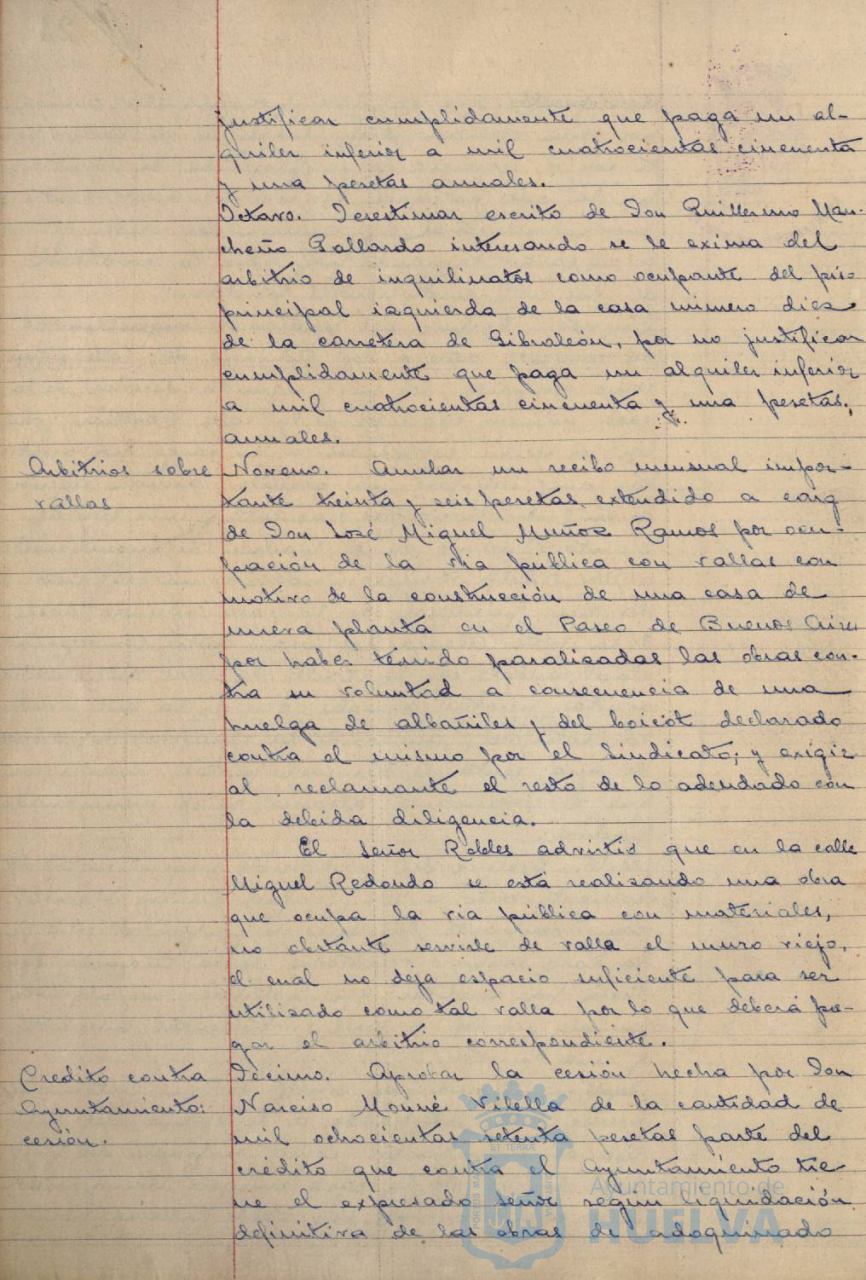 justificar cumplidamente que paga un al-
quiler inferior a mil cuatrocientas cincuenta
y una pesetas anuales.
Octavo. Desestimar escrito de Don Guillermo Man-
cheño Gallardo interesando se le exima del
arbitrio de inquilinatos como ocupante del piso
principal izquierda de la casa número diez
de la carretera de Gibraleón, por no justificar
cumplidamente que paga un alquiler inferior
a mil cuatrocientas cincuenta y una pesetas,
anuales.
Arbitrios sobre
vallas
Noveno. Anular un recibo mensual impor-
tante treinta y seis pesetas extendido a cargo
de Don José Miguel Muñoz Ramos por ocu-
pación de la vía pública con vallas con
motivo de la construcción de una casa de
nueva planta en el Paseo de Buenos Aires
por haber tenido paralizadas las obras con-
tra su voluntad a consecuencia de una
huelga de albañiles y del boicot declarado
contra el mismo por el Sindicato; y exigir
al reclamante el resto de lo adeudado con
la debida diligencia.
El Señor Robles advirtió que en la calle
Miguel Redondo se está realizando una obra
que ocupa la vía pública con materiales,
no obstante servirle de valla el muro viejo,
el cual no deja espacio suficiente para ser
utilizado como tal valla por lo que deberá pa-
gar el arbitrio correspondiente.
Crédito contra
Ayuntamiento:
cesión.
Décimo. Aprobar la cesión hecha por Don
Narciso Mouné Vilella de la cantidad de
mil ochocientas setenta pesetas parte del
crédito que contra el Ayuntamiento tie
ne el expresado señor según liquidación
definitiva de las obras de adoquinado
Ayuntamiento de
HUELVA